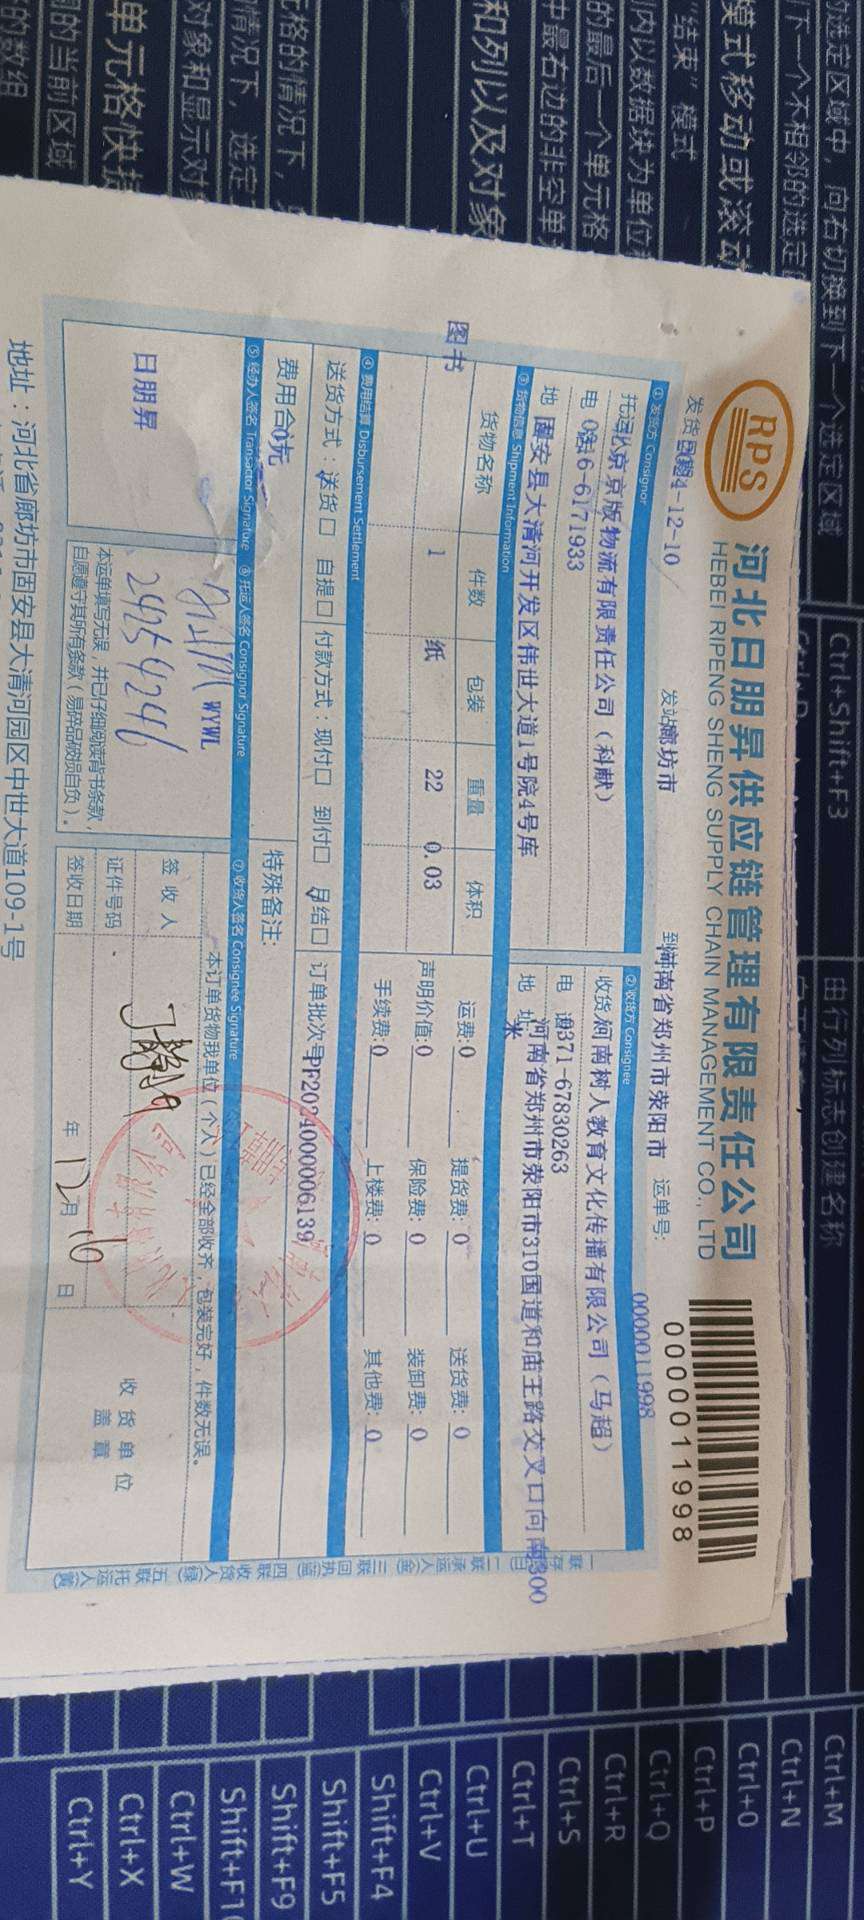 RPS
河北日朋昇供应链管理有限责任公司
HEBEI RIPENG SHENG SUPPLY CHAIN MANAGEMENT CO., LTD
0000011998
发货日期2024-12-10 发站廊坊市 到站河南省郑州市荥阳市 运单号: 0000011998
① 发货方 Consignor
② 收货方 Consignee
托运北京京版物流有限责任公司（科献）
收货河南树人教育文化传播有限公司（马超）
电话0316-6171933
电 话0371-67830263
地址固安县大清河开发区伟世大道1号院4号库
地 址河南省郑州市荥阳市310国道和庙王路交叉口向南300米
③ 货物信息 Shipment Information
货物名称 件数 包装 重量 体积
图书 1 纸 22 0.03
运费:0 提货费: 0 送货费: 0
声明价值:0 保险费: 0 装卸费: 0
手续费:0 上楼费: 0 其他费: 0
④ 费用结算 Disbursement Settlement
送货方式：送货☐ 自提☐ 付款方式：现付☐ 到付☐ 月结☐ 订单批次号PF2024000006139
费用合计0元
特殊备注:
⑤ 经办人签名 Transactor Signature
⑥ 托运人签名 Consignor Signature
⑦ 收货人签名 Consignee Signature
日朋昇
WYWL
24254246
本运单填写无误，并已仔细阅读背书条款，
自愿遵守其所有条款（易碎品破损自负）。
本订单货物我单位（个人）已经全部收齐，包装完好，件数无误。
签 收 人
证件号码
签收日期 年 12月 16 日
收 货 单 位
盖 章
地址：河北省廊坊市固安县大清河园区中世大道109-1号
一联存根(白) 二联承运人(金) 三联回执(蓝) 四联收货人(绿) 五联托运人(黄)
Ctrl+Shift+F3
由行列标志创建名称
Ctrl+M
Ctrl+N
Ctrl+O
Ctrl+P
Ctrl+Q
Ctrl+R
Ctrl+S
Ctrl+T
Ctrl+U
Ctrl+V
Shift+F4
Shift+F5
Shift+F9
Ctrl+W
Ctrl+X
Ctrl+Y
的选定区域中，向右切换到下一个选定区域
下一个不相邻的选定
模式移动或滚动
“结束”模式
内以数据块为单位
的最后一个单元格
中最右边的非空单
和列以及对象
元格的情况下，
情况下，选定
对象和显示对象
单元格快捷
的当前区域
的数组